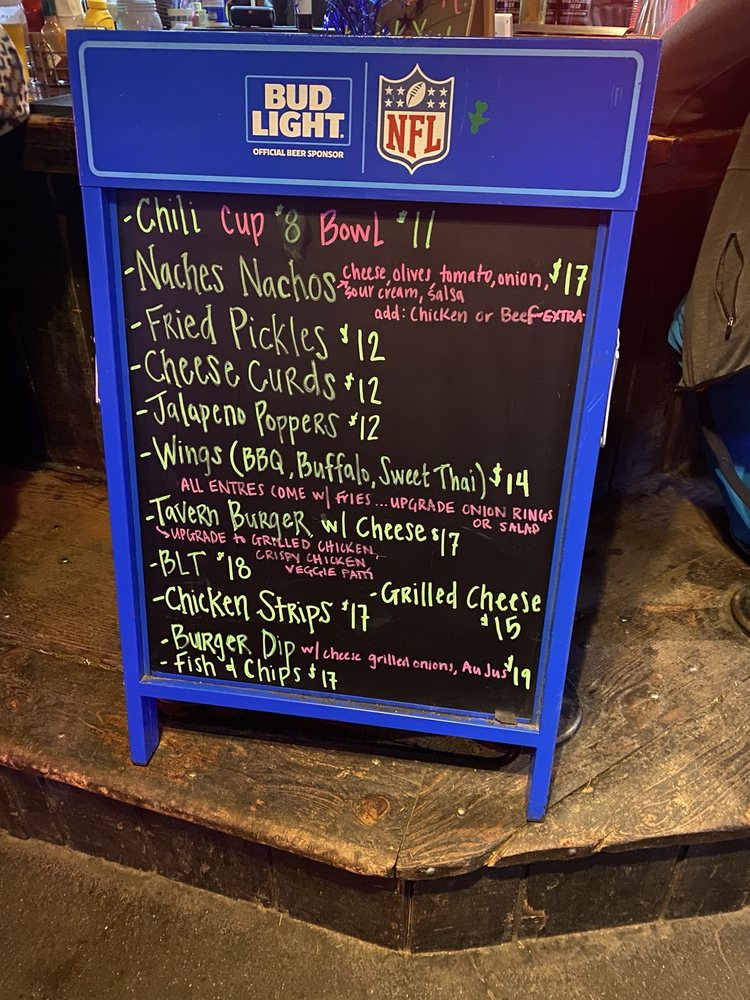 BUD
LIGHT.
OFFICIAL BEER SPONSOR
NFL
-Chili Cup $8 Bowl $11
-Naches Nachos cheese, olives, tomato, onion, $17
sour cream, salsa
add: Chicken or Beef-EXTRA
-Fried Pickles $12
-Cheese Curds $12
-Jalapeno Poppers $12
-Wings (BBQ, Buffalo, Sweet Thai) $14
ALL ENTRES COME w/ FRIES ... UPGRADE ONION RINGS
OR SALAD
-Tavern Burger w/ Cheese $17
UPGRADE to GRILLED CHICKEN,
CRISPY CHICKEN,
VEGGIE PATTI
-BLT $18
-Grilled Cheese
$15
-Chicken Strips $17
-Burger Dip w/ cheese grilled onions, Au Jus $19
-Fish & Chips $17